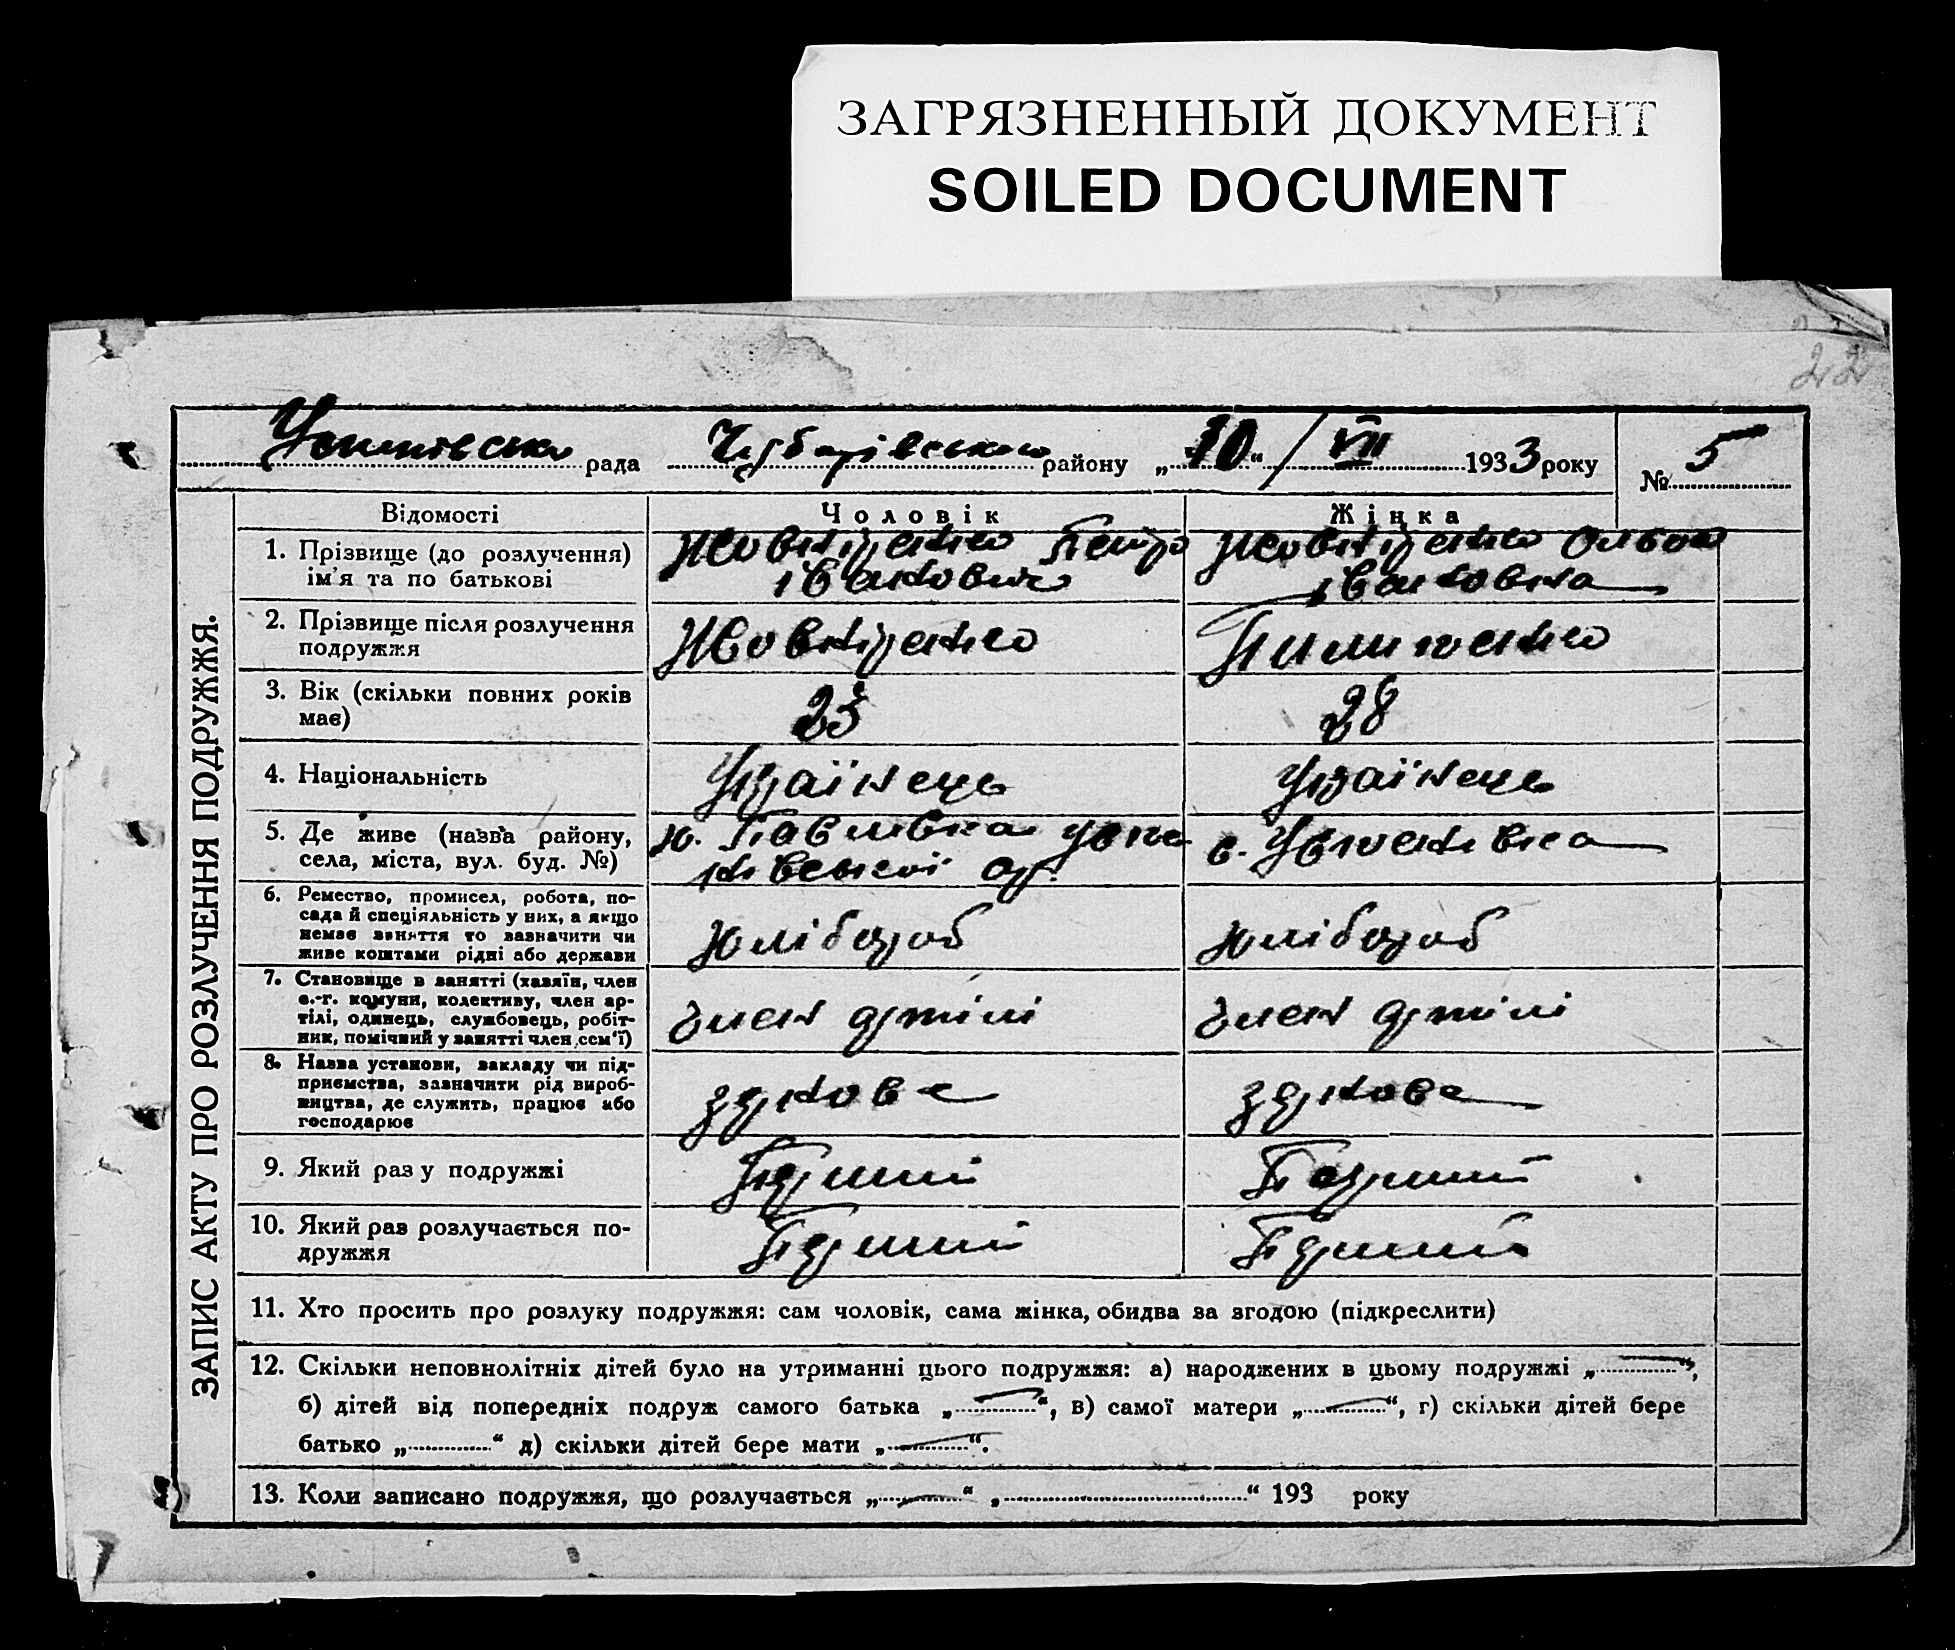 ЗАГРЯЗНЕННЫЙ ДОКУМЕНТ
SOILED DOCUMENT
22
рада Чубарівського району „10“ / VII 1933 року № 5
ЗАПИС АКТУ ПРО РОЗЛУЧЕННЯ ПОДРУЖЖЯ.
Відомості Чоловік Жінка
1. Прізвище (до розлучення) Петро
ім'я та по батькові Іванович Івановна
2. Прізвище після розлучення
подружжя Пилипенко
3. Вік (скільки повних років 28
має)
4. Національність Українець Українець
5. Де живе (назва району, х. Павлівка с. Успенівка
села, міста, вул. буд. №)
6. Ремество, промисел, робота, по-
сада й спеціяльність у них, а якщо
немає заняття то зазначити чи хлібороб хлібороб
живе коштами рідні або держави
7. Становище в занятті (хазяїн, член
с.-г. комуни, колективу, член ар-
тілі, одинець, службовець, робіт- член артілі член артілі
ник, помічний у занятті член сем'ї)
8. Назва установи, закладу чи під-
приємства, зазначити рід вироб-
ництва, де служить, працює або зернове зернове
господарює
9. Який раз у подружжі Перший Перший
10. Який раз розлучається по- Перший Перший
дружжя
11. Хто просить про розлуку подружжя: сам чоловік, сама жінка, обидва за згодою (підкреслити)
12. Скільки неповнолітніх дітей було на утриманні цього подружжя: а) народжених в цьому подружжі „—“,
б) дітей від попередніх подруж самого батька „—“, в) самої матери „—“, г) скільки дітей бере
батько „..........“ д) скільки дітей бере мати „—“.
13. Коли записано подружжя, що розлучається „—“ „..........“ 193 року